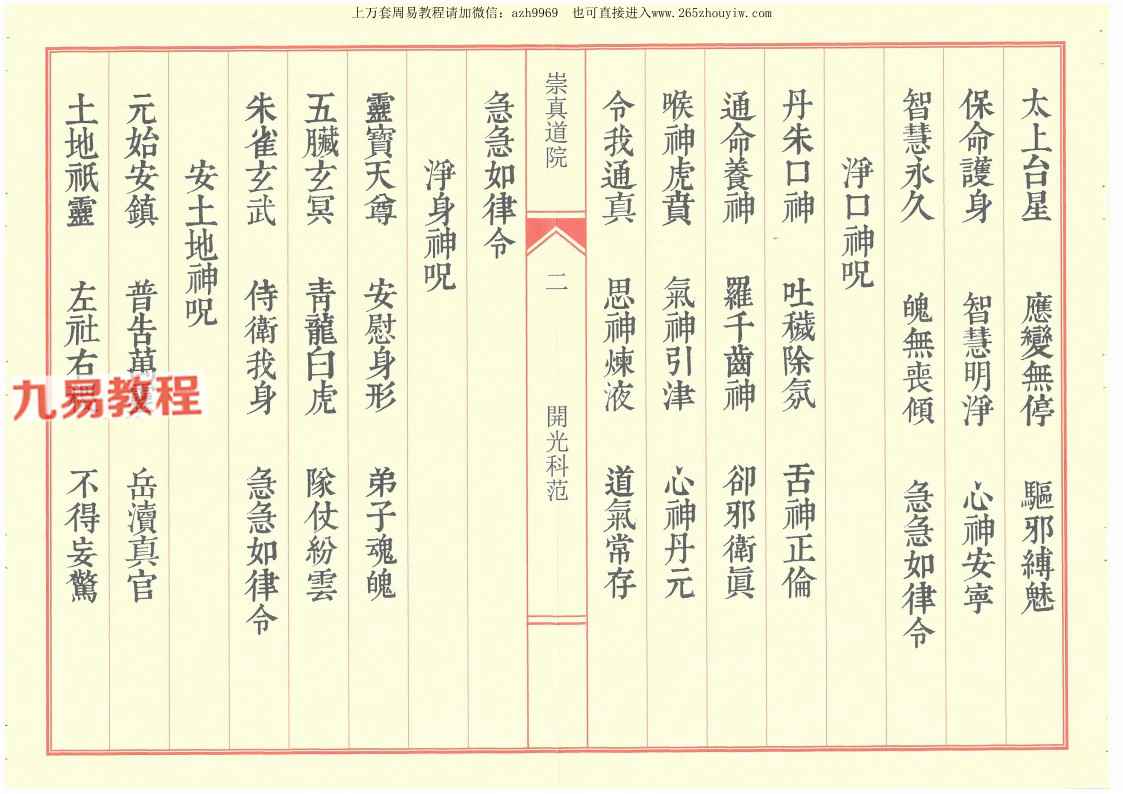 上万套周易教程请加微信：azh9969　也可直接进入www.265zhouyiw.com
太上台星　應變無停　驅邪縛魅
保命護身　智慧明淨　心神安寧
智慧永久　魄無喪傾　急急如律令
淨口神呪
丹朱口神　吐穢除氛　舌神正倫
通命養神　羅千齒神　卻邪衛眞
喉神虎賁　氣神引津　心神丹元
令我通真　思神煉液　道氣常存
崇真道院　二　開光科范
急急如律令
淨身神呪
靈寶天尊　安慰身形　弟子魂魄
五臟玄冥　青龍白虎　隊仗紛雲
朱雀玄武　侍衛我身　急急如律令
安土地神呪
元始安鎮　普告萬靈　岳瀆真官
土地祇靈　左社右稷　不得妄驚
九易教程